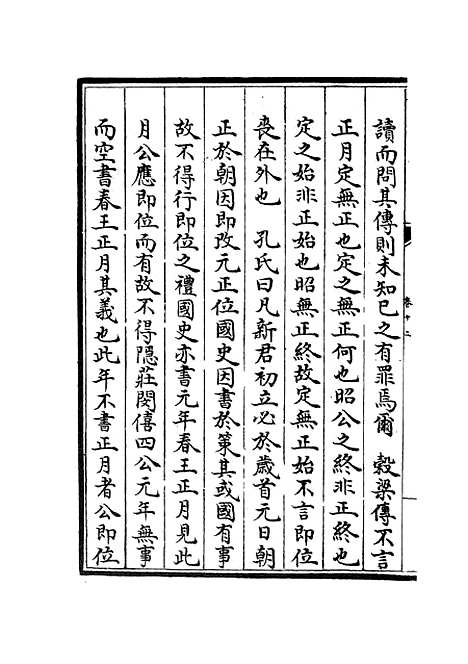 讀而問其傳則未知己之有罪焉爾　穀梁傳不言
正月定無正也定之無正何也昭公之終非正終也
定之始非正始也昭無正終故定無正始不言即位
喪在外也　孔氏曰凡新君初立必於歲首元日朝
正於朝因即改元正位國史因書於策其或國有事
故不得行即位之禮國史亦書元年春王正月見此
月公應即位而有故不得隱莊閔僖四公元年無事
而空書春王正月其義也此年不書正月者公即位
卷十二